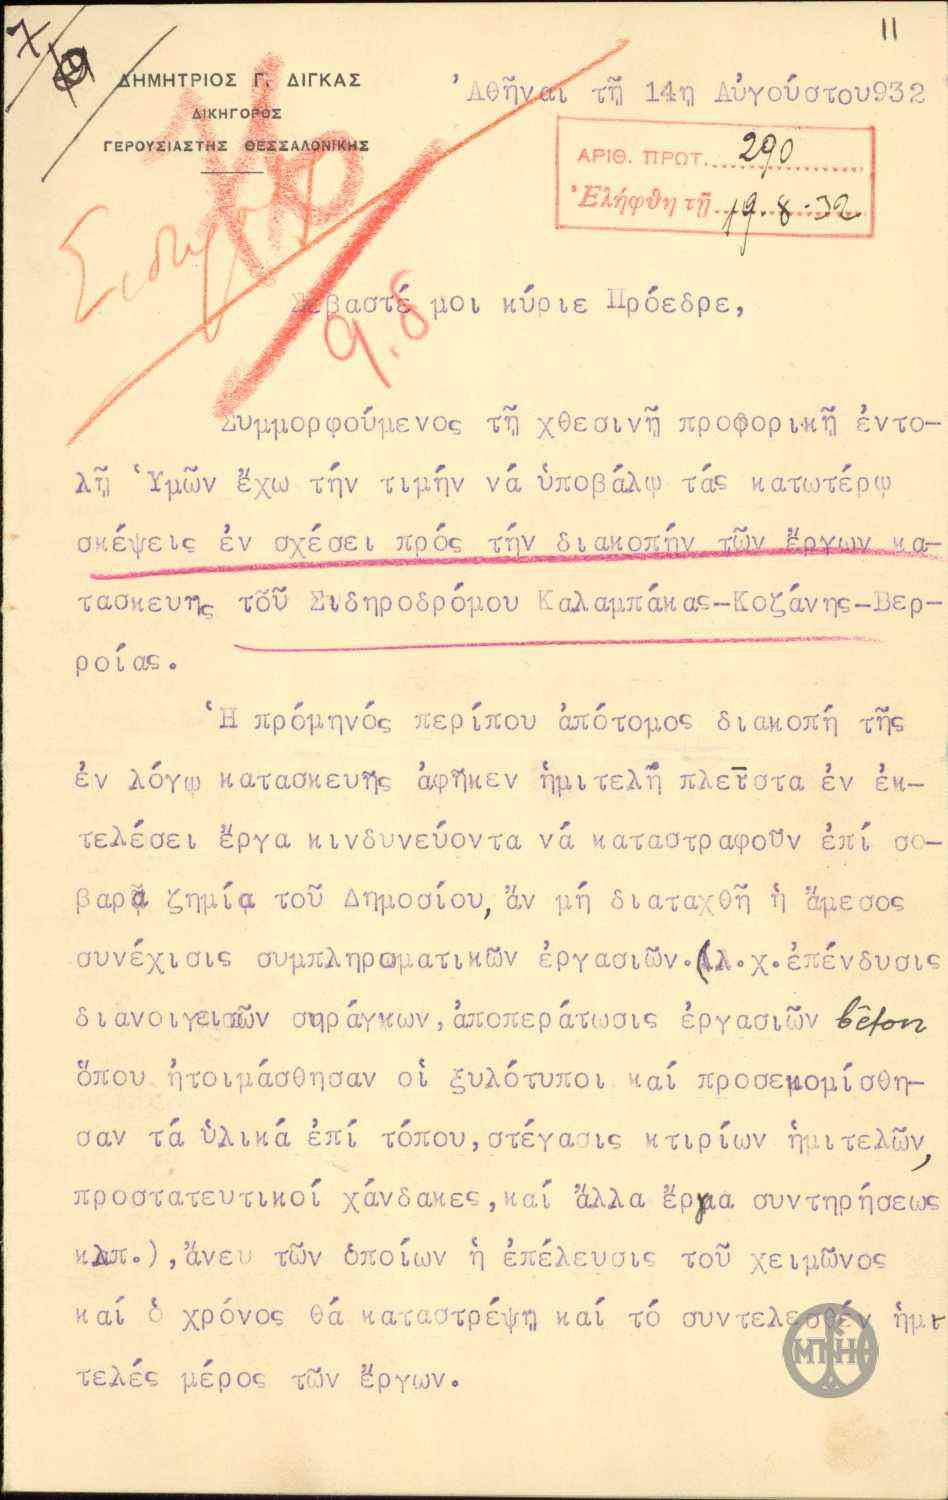 11
ΔΗΜΗΤΡΙΟΣ Γ. ΔΙΓΚΑΣ
ΔΙΚΗΓΟΡΟΣ
ΓΕΡΟΥΣΙΑΣΤΗΣ ΘΕΣΣΑΛΟΝΙΚΗΣ
Ἀθῆναι τῇ 14η Αὐγούστου932
ΑΡΙΘ. ΠΡΩΤ. 290
Ἐλήφθη τῇ 19.8.32
9.8
Σεβαστέ μοι κύριε Πρόεδρε,
Συμμορφούμενος τῇ χθεσινῇ προφορικῇ ἐντο-
λῇ Ὑμῶν ἔχω τήν τιμήν νά ὑποβάλω τάς κατωτέρω
σκέψεις ἐν σχέσει πρός τήν διακοπήν τῶν ἔργων κα-
τασκευης τοῦ Σιδηροδρόμου Καλαμπάκας-Κοζάνης-Βερ-
ροίας.
Ἡ πρόμηνός περίπου ἀπότομος διακοπή τῆς
ἐν λόγῳ κατασκευῆς ἀφῆκεν ἡμιτελῆ πλεῖστα ἐν ἐκ-
τελέσει ἔργα κινδυνεύοντα νά καταστραφοῦν ἐπί σο-
βαρᾷ ζημίᾳ τοῦ Δημοσίου, ἄν μή διαταχθῇ ἡ ἄμεσος
συνέχισις συμπληρωματικῶν ἐργασιῶν.(λ.χ.ἐπένδυσις
διανοιγεισῶν σηράγκων,ἀποπεράτωσις ἐργασιῶν bêton
ὅπου ἡτοιμάσθησαν οἱ ξυλότυποι καί προσεκομίσθη-
σαν τά ὑλικά ἐπί τόπου,στέγασις κτιρίων ἡμιτελῶν,
προστατευτικοί χάνδακες,καί ἄλλα ἔργα συντηρήσεως
κλπ.),ἄνευ τῶν ὁποίων ἡ ἐπέλευσις τοῦ χειμῶνος
καί ὁ χρόνος θά καταστρέψῃ καί τό συντελεσθέν ἡμι-
τελές μέρος τῶν ἔργων.